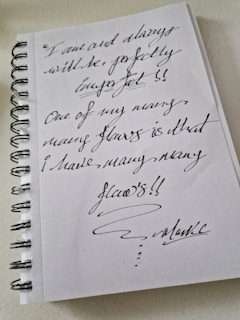 "I am and always
will be, perfectly
Imperfect !!
One of my many,
many flaws is that
I have, many, many
flaws!!